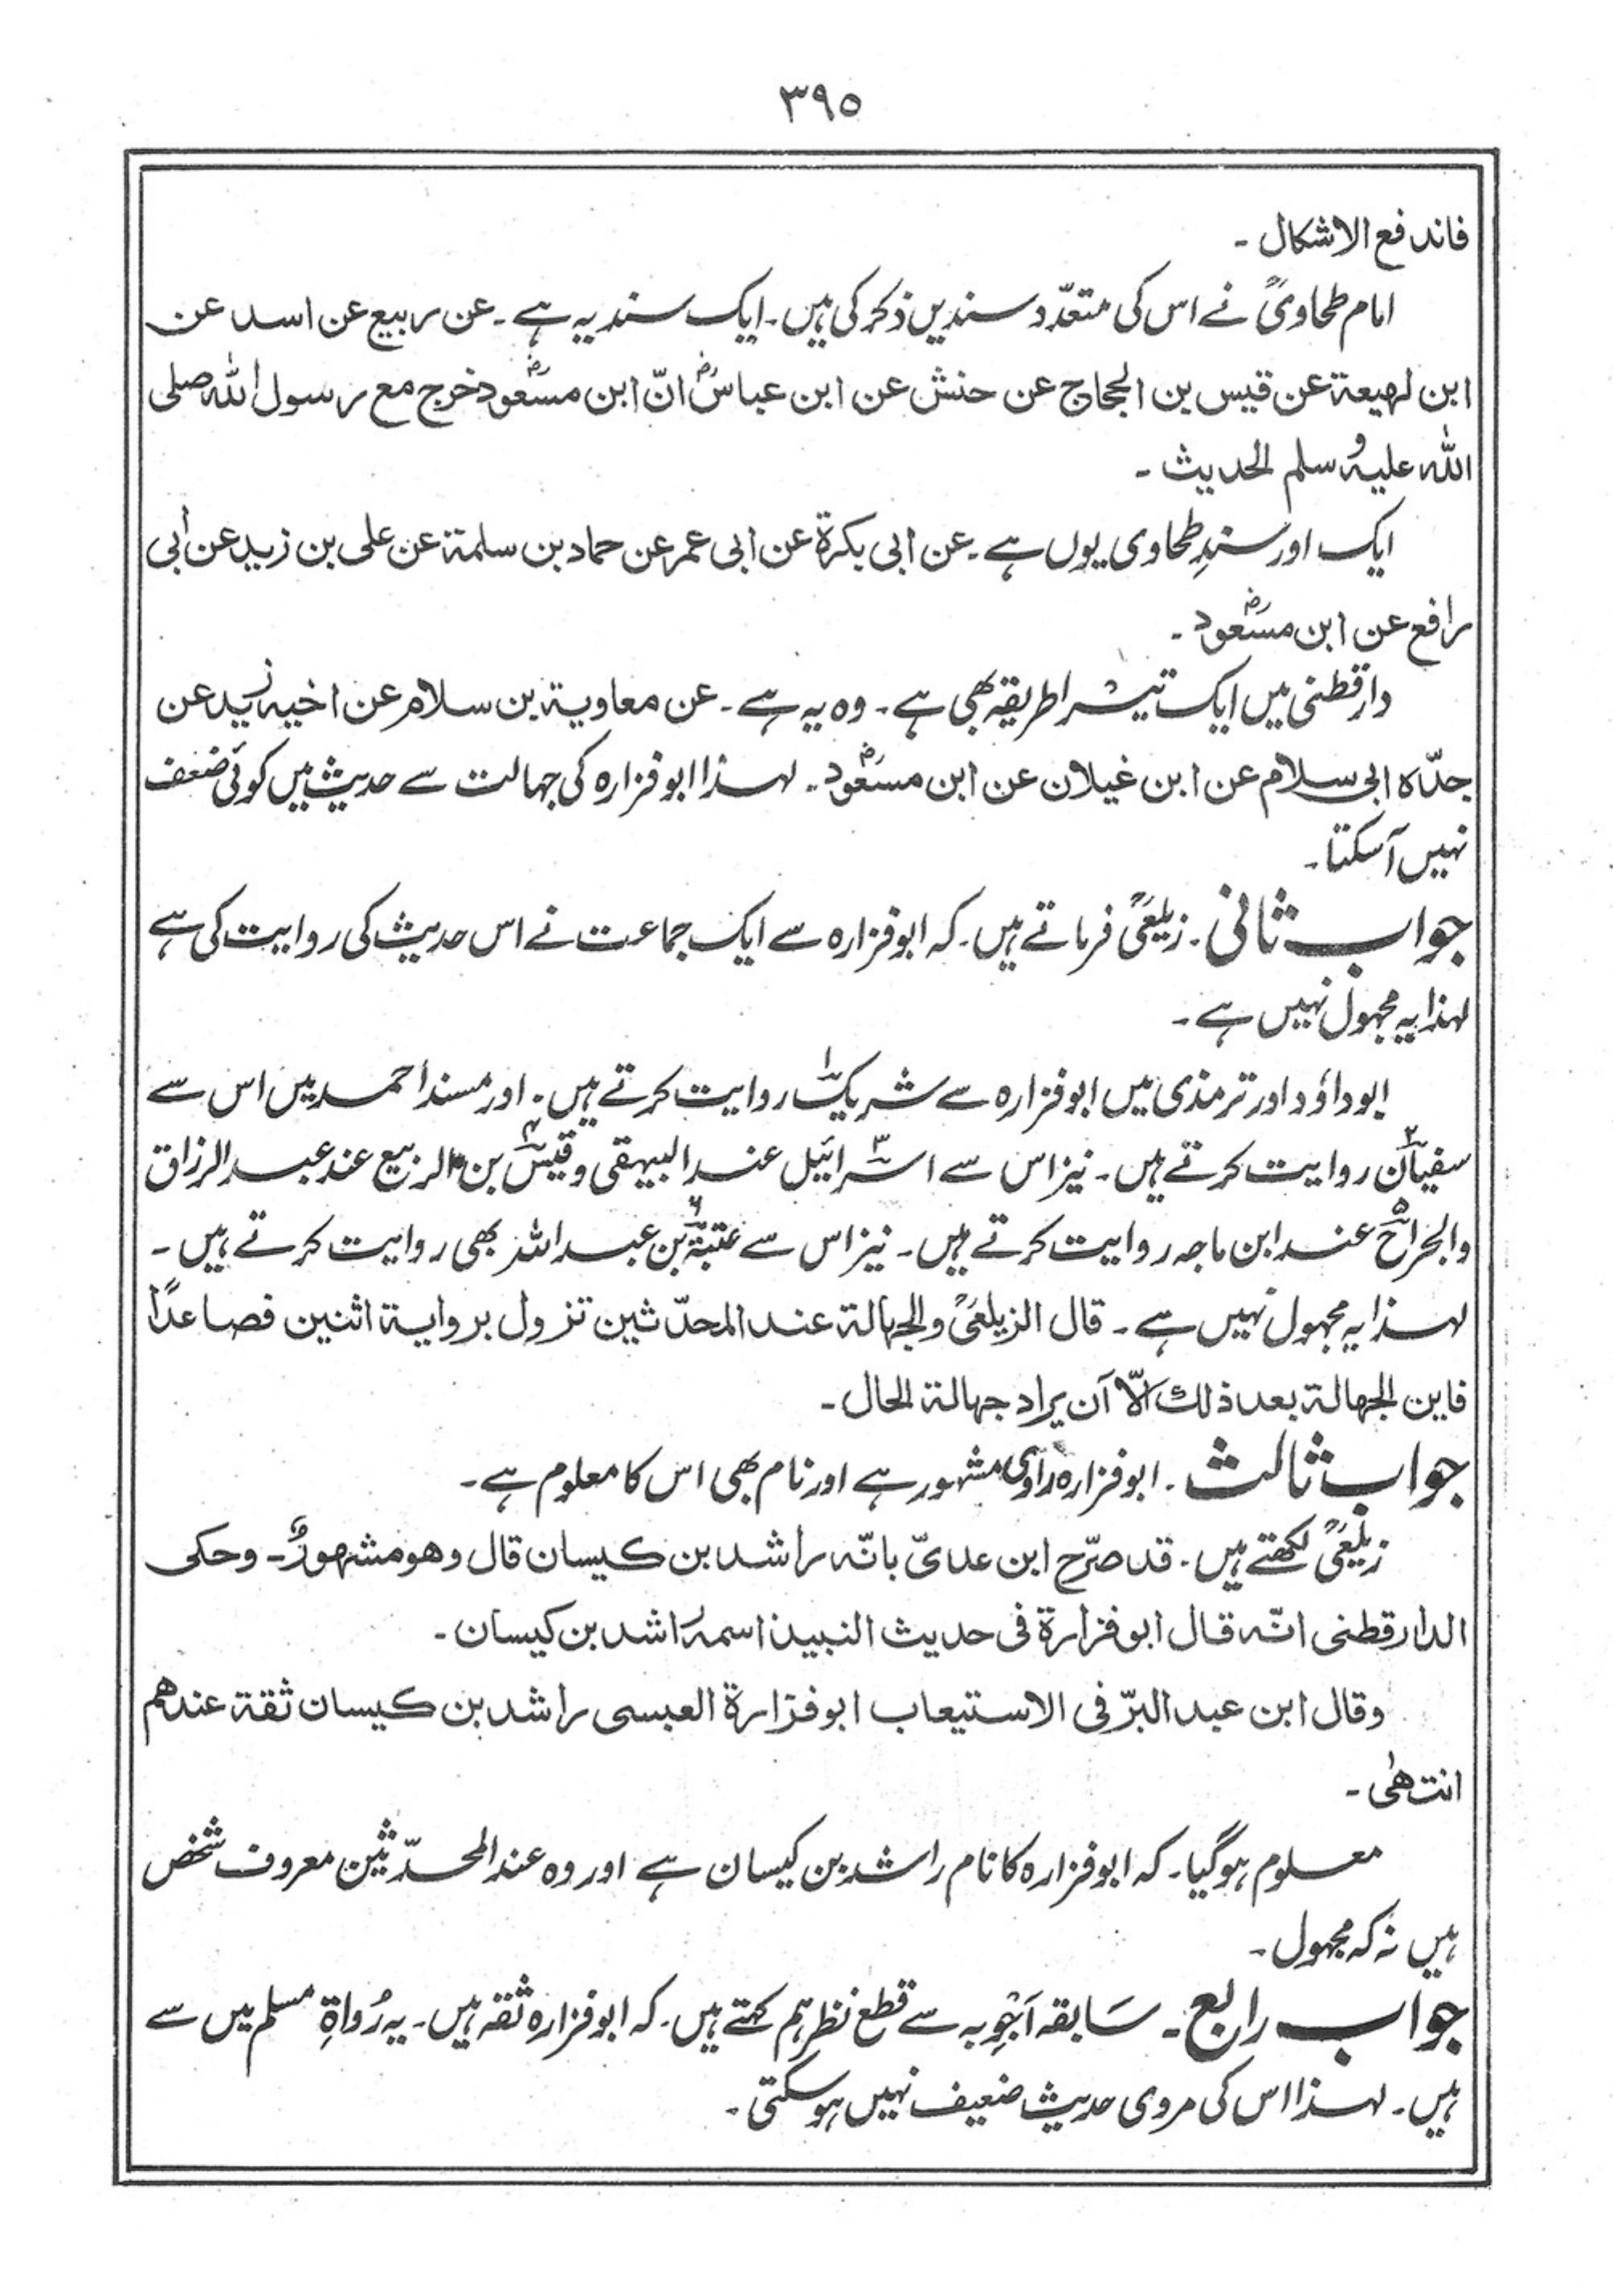 ٣٩٥
فاندفع الاشکال ۔
امام طحاویؒ نے اس کی متعدّد سندیں ذکر کی ہیں۔ ایک سند یہ ہے ۔ عن ربیع عن اسد عن
ابن لھیعة عن قیس بن الحجاج عن حنش عن ابن عباسؓ انّ ابن مسعودؓ خرج مع رسول اللہ صلی
اللہ علیہ وسلم الحدیث ۔
ایک اور سندِ طحاوی یوں ہے ۔ عن ابی بکرة عن ابی عمر عن حماد بن سلمة عن علی بن زید عن ابی
رافع عن ابن مسعودؓ ۔
دارقطنی میں ایک تیسرا طریقہ بھی ہے ۔ وہ یہ ہے ۔ عن معاویة بن سلام عن اخیہ زید عن
جدّہ ابی سلام عن ابن غیلان عن ابن مسعودؓ ۔ لہذا ابوفزارہ کی جہالت سے حدیث میں کوئی ضعف
نہیں آسکتا ۔
جواب ثانی ۔ زیلعیؒ فرماتے ہیں ۔ کہ ابوفزارہ سے ایک جماعت نے اس حدیث کی روایت کی ہے
لہذا یہ مجہول نہیں ہے ۔
ابوداؤد اور ترمذی میں ابوفزارہ سے شریک۱ روایت کرتے ہیں ۔ اور مسند احمد میں اس سے
سفیان۲ روایت کرتے ہیں ۔ نیز اس سے اسرائیل۳ عند البیہقی و قیس۴ بن الربیع عند عبد الرزاق
والجراح۵ عند ابن ماجہ روایت کرتے ہیں ۔ نیز اس سے عتبة۶ بن عبد اللہ بھی روایت کرتے ہیں ۔
لہذا یہ مجہول نہیں ہے ۔ قال الزیلعیؒ والجھالة عند المحدّثین تزول بروایة اثنین فصاعدًا
فاین الجھالة بعد ذلك الّا آن یراد جھالة الحال ۔
جواب ثالث ۔ ابوفزارہ راوی مشہور ہے اور نام بھی اس کا معلوم ہے ۔
زیلعیؒ لکھتے ہیں ۔ قد صرّح ابن عدیّ بانّہ راشد بن کیسان قال وھو مشھورٌ ۔ وحکی
الدارقطنی انّہ قال ابو فزارة فی حدیث النبیذ اسمہ راشد بن کیسان ۔
وقال ابن عبد البرّ فی الاستیعاب ابو فزارة العبسی راشد بن کیسان ثقة عندھم
انتھٰی ۔
معلوم ہوگیا ۔ کہ ابوفزارہ کا نام راشد بن کیسان ہے اور وہ عند المحدّثین معروف شخص
ہیں نہ کہ مجہول ۔
جواب رابع ۔ سَابقہ اَجْوِبہ سے قطع نظر ہم کہتے ہیں ۔ کہ ابوفزارہ ثقہ ہیں ۔ یہ رُواةِ مسلم میں سے
ہیں ۔ لہذا اس کی مروی حدیث ضعیف نہیں ہوسکتی ۔